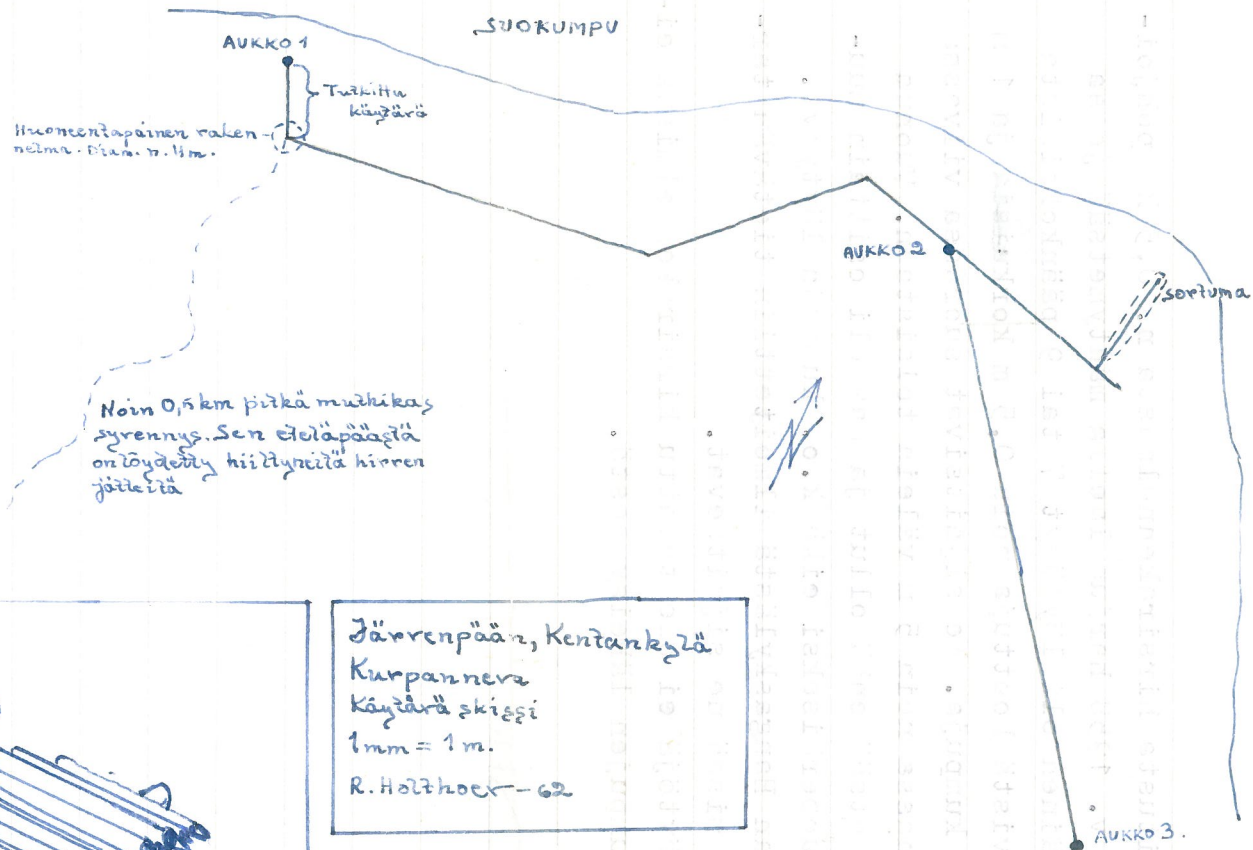 SUOKUMPU
AUKKO 1
Tutkittu
käytävä
Huoneentapainen raken-
nelma. Diam. n. 4m.
AUKKO 2
sortuma
Noin 0,5 km pitkä mutkikas
syvennys. Sen eteläpäästä
on löydetty hiiltyneitä hirren
jätteitä
N
Järvenpään, Kentankylä
Kurpanneva
Käytävä skissi
1mm = 1 m.
R. Holthoer - 62
AUKKO 3.